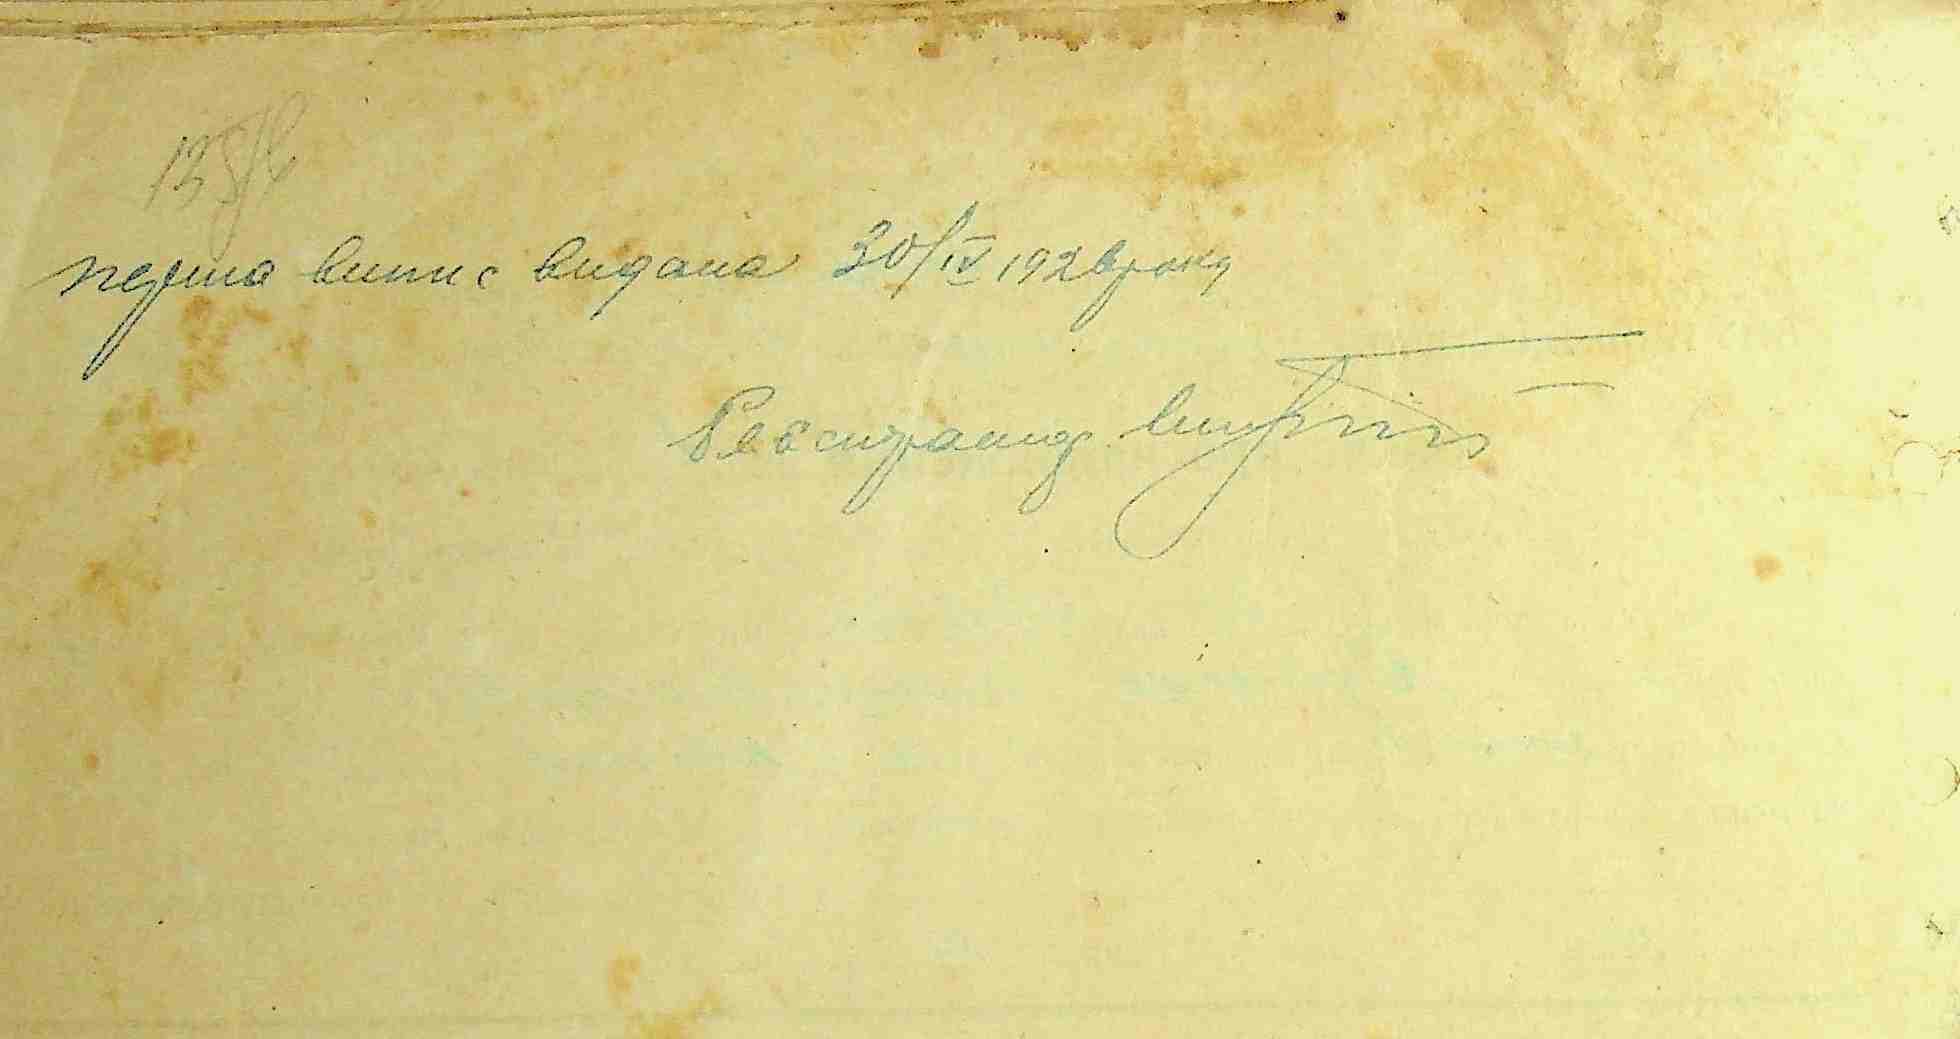 перша випис видана 30/IV 1926 року
Реєстратор